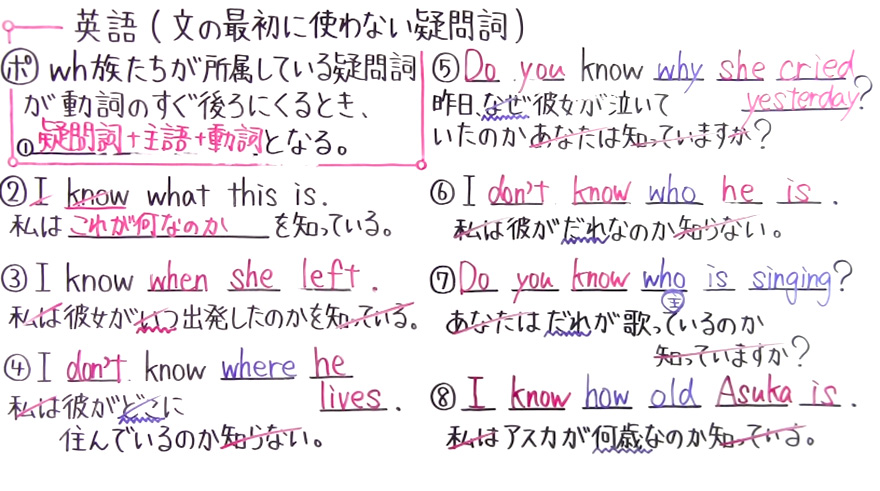 英語(文の最初に使わない疑問詞)
ポ wh族たちが所属している疑問詞
が動詞のすぐ後ろにくるとき、
①疑問詞+主語+動詞となる。
② I know what this is.
私はこれが何なのかを知っている。
③ I know when she left.
私は彼女がいつ出発したのかを知っている。
④ I don't know where he
lives.
私は彼がどこに
住んでいるのか知らない。
⑤ Do you know why she cried
yesterday?
昨日、なぜ彼女が泣いて
いたのかあなたは知っていますか?
⑥ I don't know who he is.
私は彼がだれなのか知らない。
⑦ Do you know who is singing?
主
あなたはだれが歌っているのか
知っていますか?
⑧ I know how old Asuka is.
私はアスカが何歳なのか知っている。